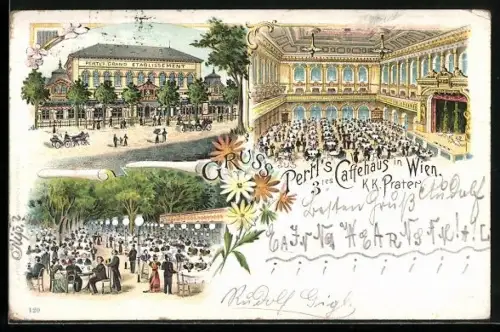 PERTL'S GRAND ETABLISSEMENT
GRUSS
Pertl's
3tes Caffehaus in Wien.
K.K. Prater.
Besten Gruß Rudolf
Rudolf Gigl.
129